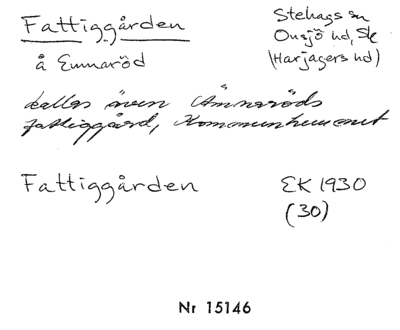 Fattiggården
Stehags sn
Onsjö hd, Sk
(Harjagers hd)
å Emmaröd
kallas även Ämneröds
fattiggård, Kommunhemmet
Fattiggården
EK 1930
(30)
Nr 15146